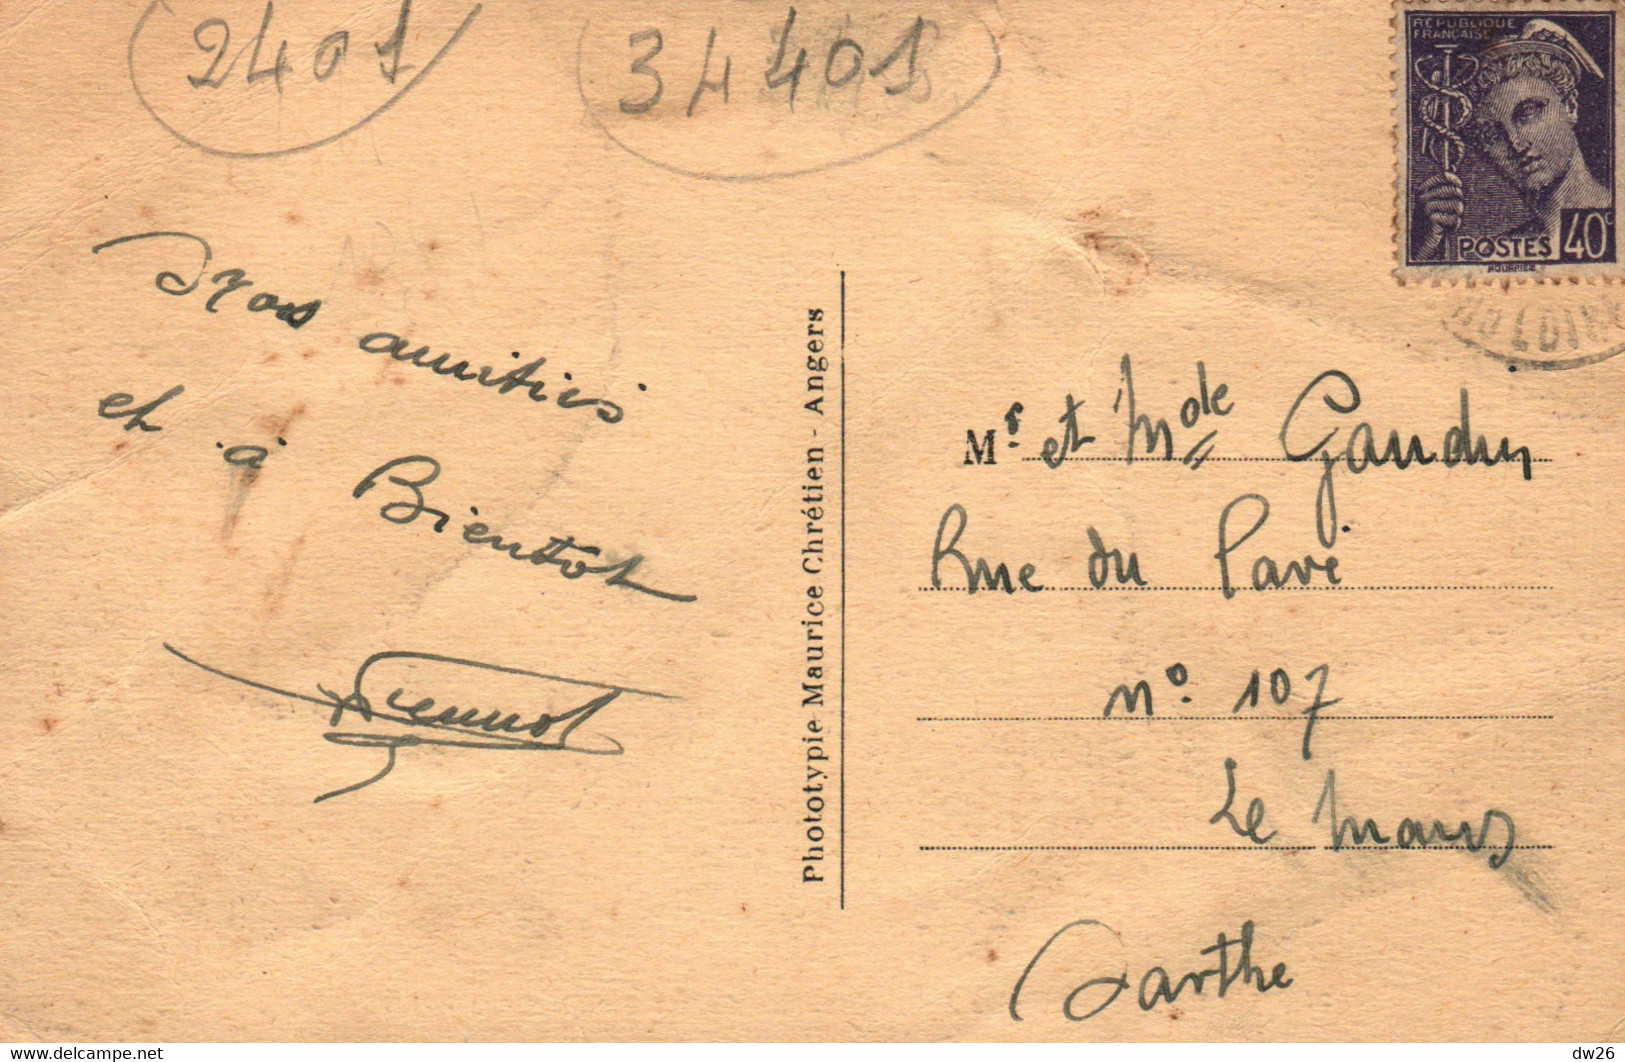 2401
34401
RÉPUBLIQUE
FRANÇAISE
POSTES 40c
amitiés
et à
Bientot
Phototypie Maurice Chrétien - Angers
Mr et Mde Gaudin
Rue du Pavé
n° 107
Le Mans
Sarthe
delcampe.net
dw26